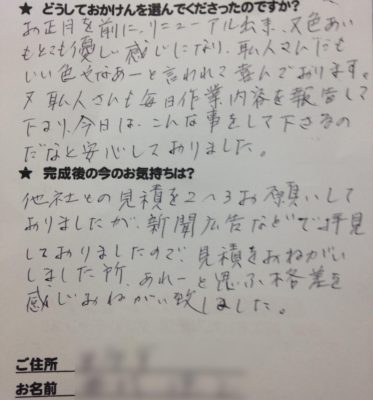 ★ どうしておかけんを選んでくださったのですか?
お正月を前に、リニューアル出来、又色あい
もとても優しい感じになり、私人さんたちも
いい色やなあーと言われて喜んでおります。
又私人さんも毎日作業内容を報告して
下さり、今日は、こんな事をして下さるの
だなと安心しておりました。
★ 完成後の今のお気持ちは?
他社との見積を2〜3お願いして
おりましたが、新聞広告などで拝見
しておりましたので、見積をおねがい
しました所、あれーと思ふ格差を
感じおねがい致しました。
ご住所
お名前